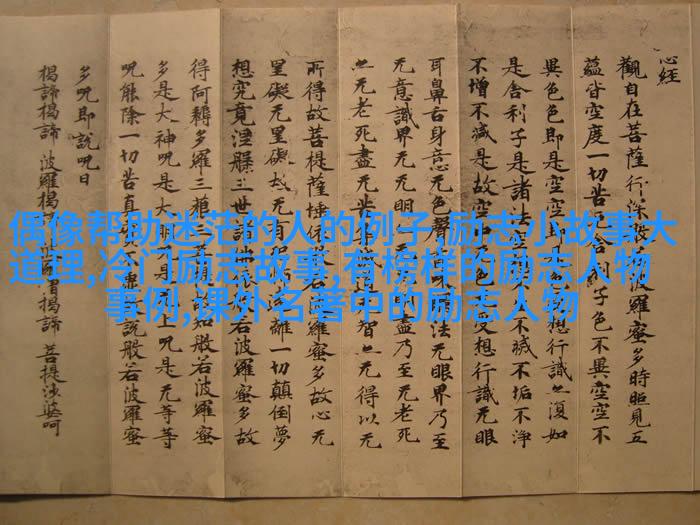 偶像帮助迷茫的人的例子,励志小故事大
道理,冷门励志故事,有榜样的励志人物
事例,课外名著中的励志人物
心经
觀自在菩薩行深波羅蜜多時照見五
蘊皆空度一切苦舍利子色不異空空不
異色色即是空空即是色想行識亦復如
是舍利子是諸法空不滅不垢不淨
不增不減是故空中色受想行識无眼
耳鼻舌身意无色聲法无眼界乃至
无意識界无无明盡乃至无老死
亦无老死盡无苦道智亦无得以无
所得故菩提薩埵依般波羅蜜多故心无
罣礙无罣礙故无有遠離一切顛倒夢
想究竟涅槃三世諸佛依若波羅蜜多故
得阿耨多羅三藐三菩提知般若波羅蜜
多是大神呪是大明呪是上呪是无等等
呪能除一切苦真實虛說般若波羅蜜
多呪即說呪曰
揭諦揭諦 波羅揭 波羅揭諦 菩提婆呵